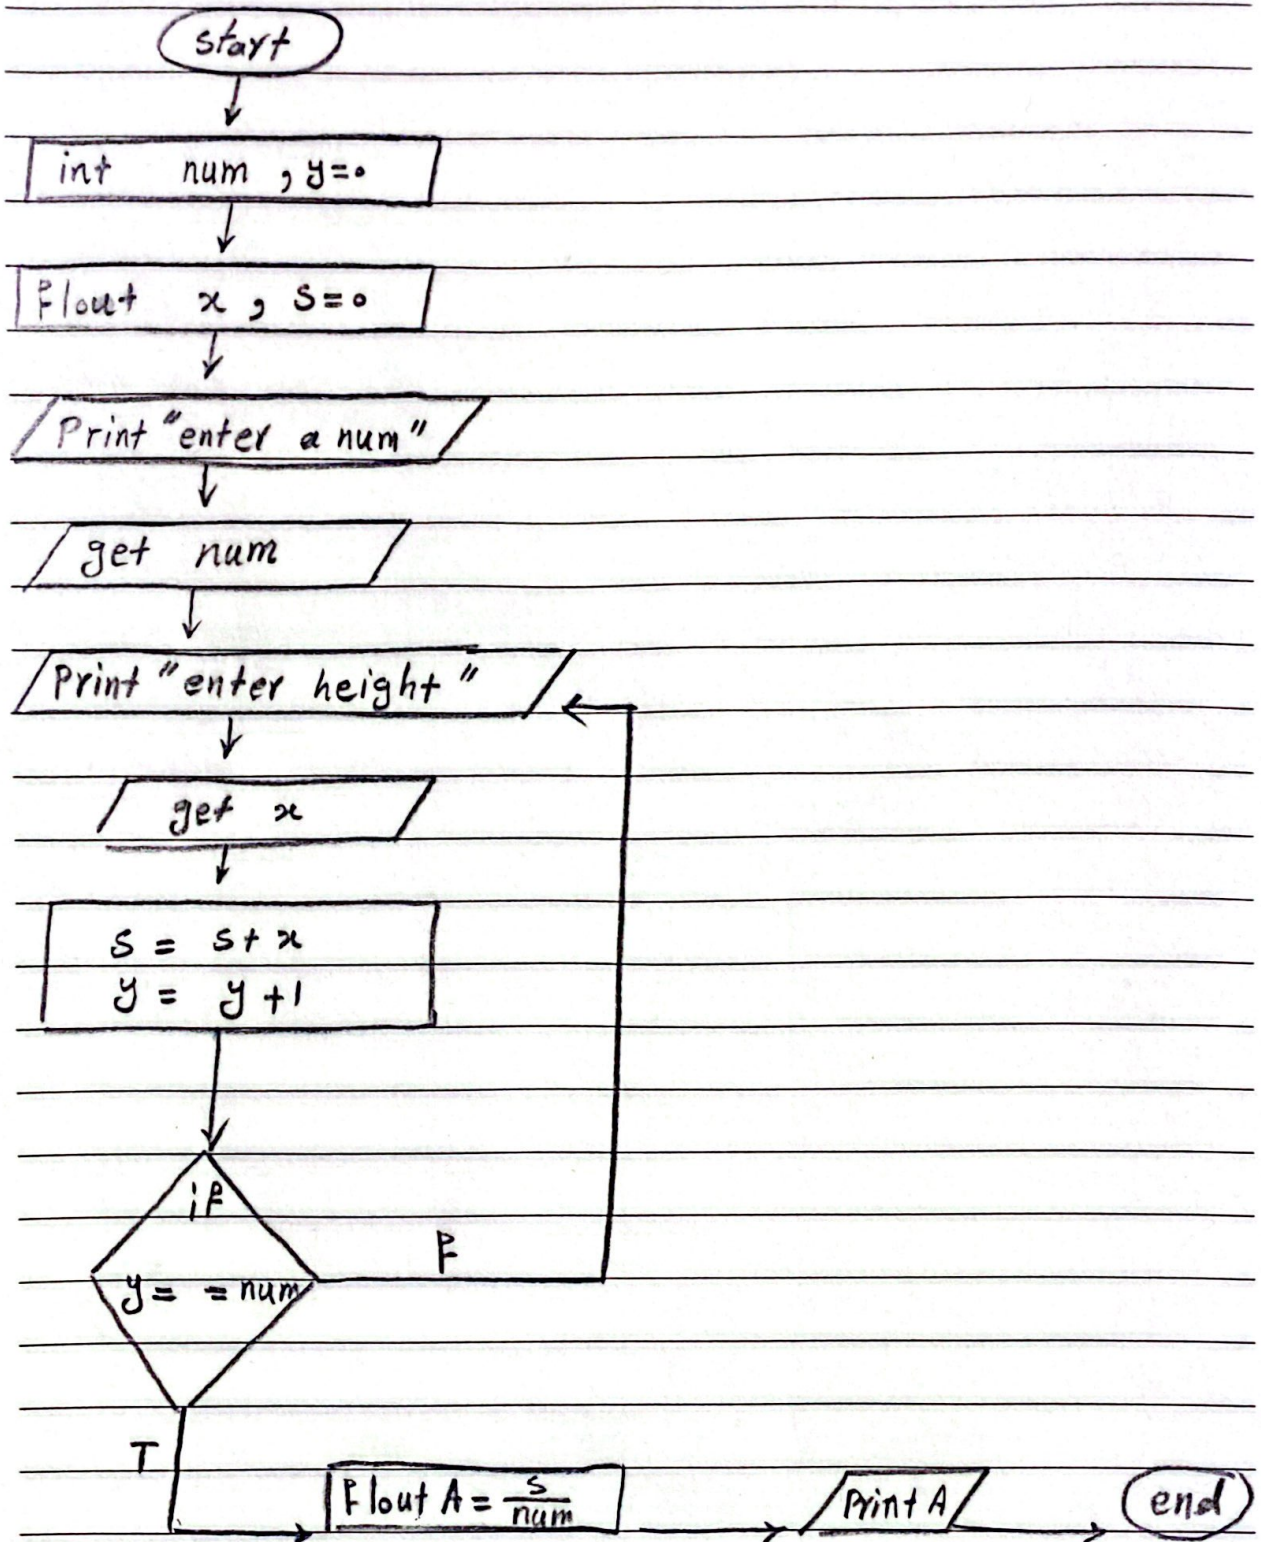 start
int num , y=0
Flout x , S=0
Print "enter a num"
get num
Print "enter height"
get x
S = S+x
y = y+1
if
y= =num
F
T
Flout A = S/num
Print A
end